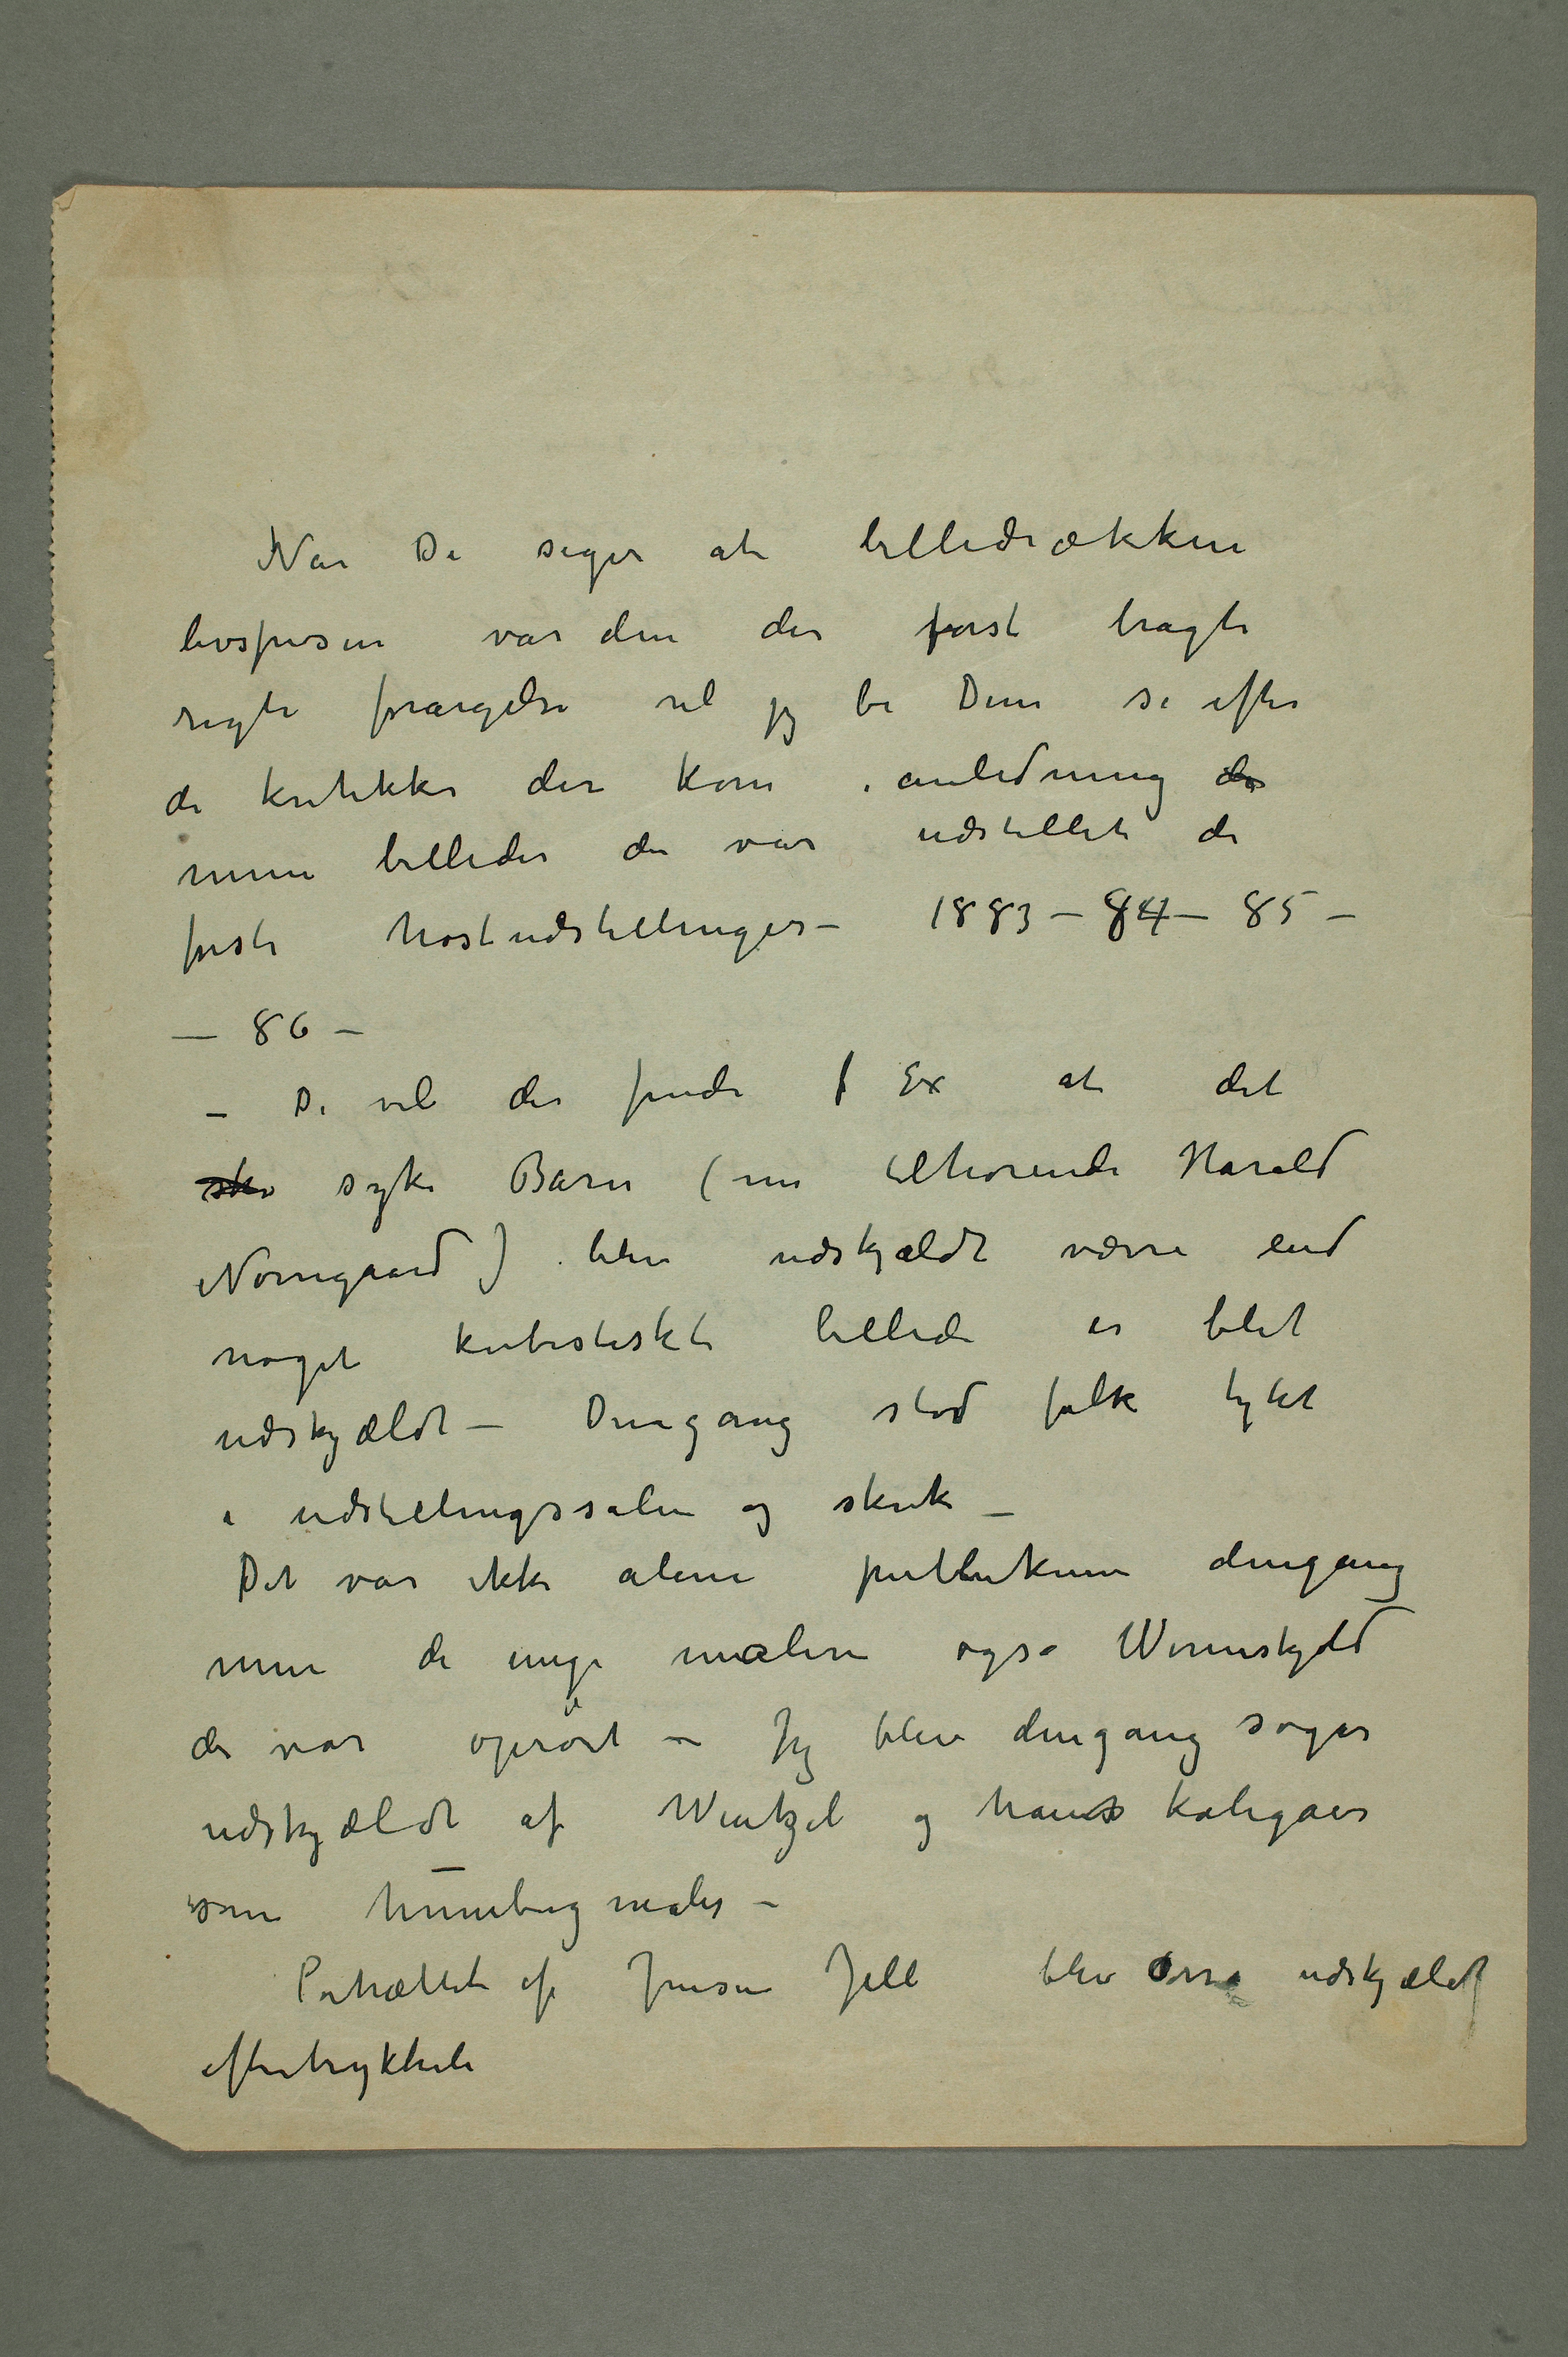 Når De siger at billedrækken
livsfrisen var den der først bragte
rigti forargelse vil jeg be Dem se efter
de kritikker der kom i anledning de
mine billeder der var udstillet de
første høstudstillinger – 1883 – 84 – 85 –
– 86 –
– De vil der finde f Ex at det
syke Barn (nu tilhørende Harald
Norregaard) blev udskjældt værre end
noget kubistiskt billede er blet
udskjældt – Dengang stod folk tykt
i udstillingssalen og skrek –
Det var ikke alene publikum dengang
men de unge malere også Werenskjold
der var oprørt – Jeg blev dengang sogar
udskjældt af Wentzel og hans kolegaer
som humbugmaler –
Portrættet af Jensen Jell blev også udskjældt
eftertrykkeli